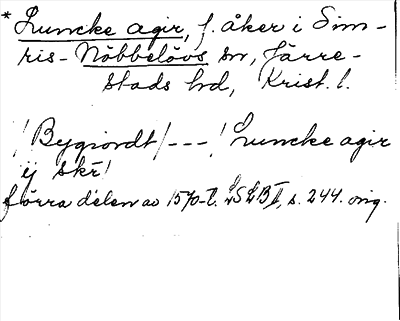 * Luncke agir, f. åker i Sim-
ris-Nöbbelövs sn, Järre-
stads hd, Krist. l.
! Bygiordt /---! Luncke agir
ij skr̄!
förra delen av 1570-t. LSLB II, s. 244. orig.